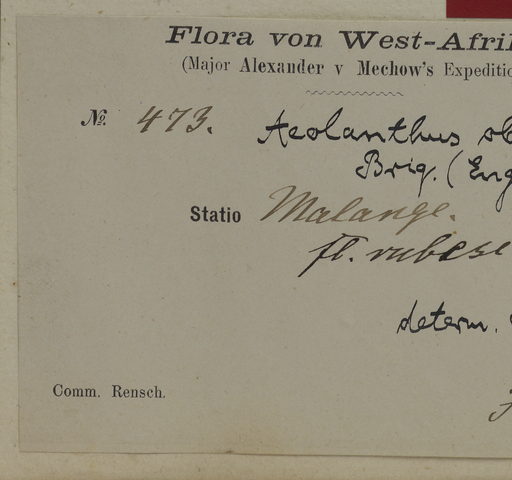 Flora von West-Afri
(Major Alexander v Mechow's Expeditio
№. 473. Aeolanthus ob
Briq. (Eng
Statio Malange.
fl. rubesc
determ.
Comm. Rensch.